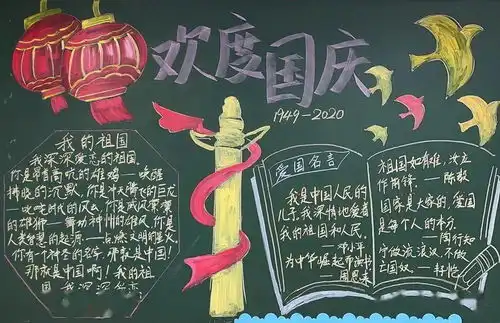 欢度国庆
1949-2020
我的祖国
我深深爱恋的祖国.
你是昂首高吭的雄鸡——唤醒
拂晓的沉默,你是冲天腾飞的巨龙
你是威风凛凛
的雄狮——舞动神州的雄风,你是
人类智慧的起源——点燃文明的星火.
你有一个神圣的名字,那就是中国!
那就是中国啊!我的祖
国 我深深
爱国名言
我是中国人民的
儿子,我深情地爱着
我的祖国和人民.
——邓小平
为中华崛起而读书
——周恩来
祖国如有难,汝应
作前锋. ——陈毅
国家是大家的,爱国
是每个人的本分.
——陶行知
宁做流浪汉,不做
亡国奴.